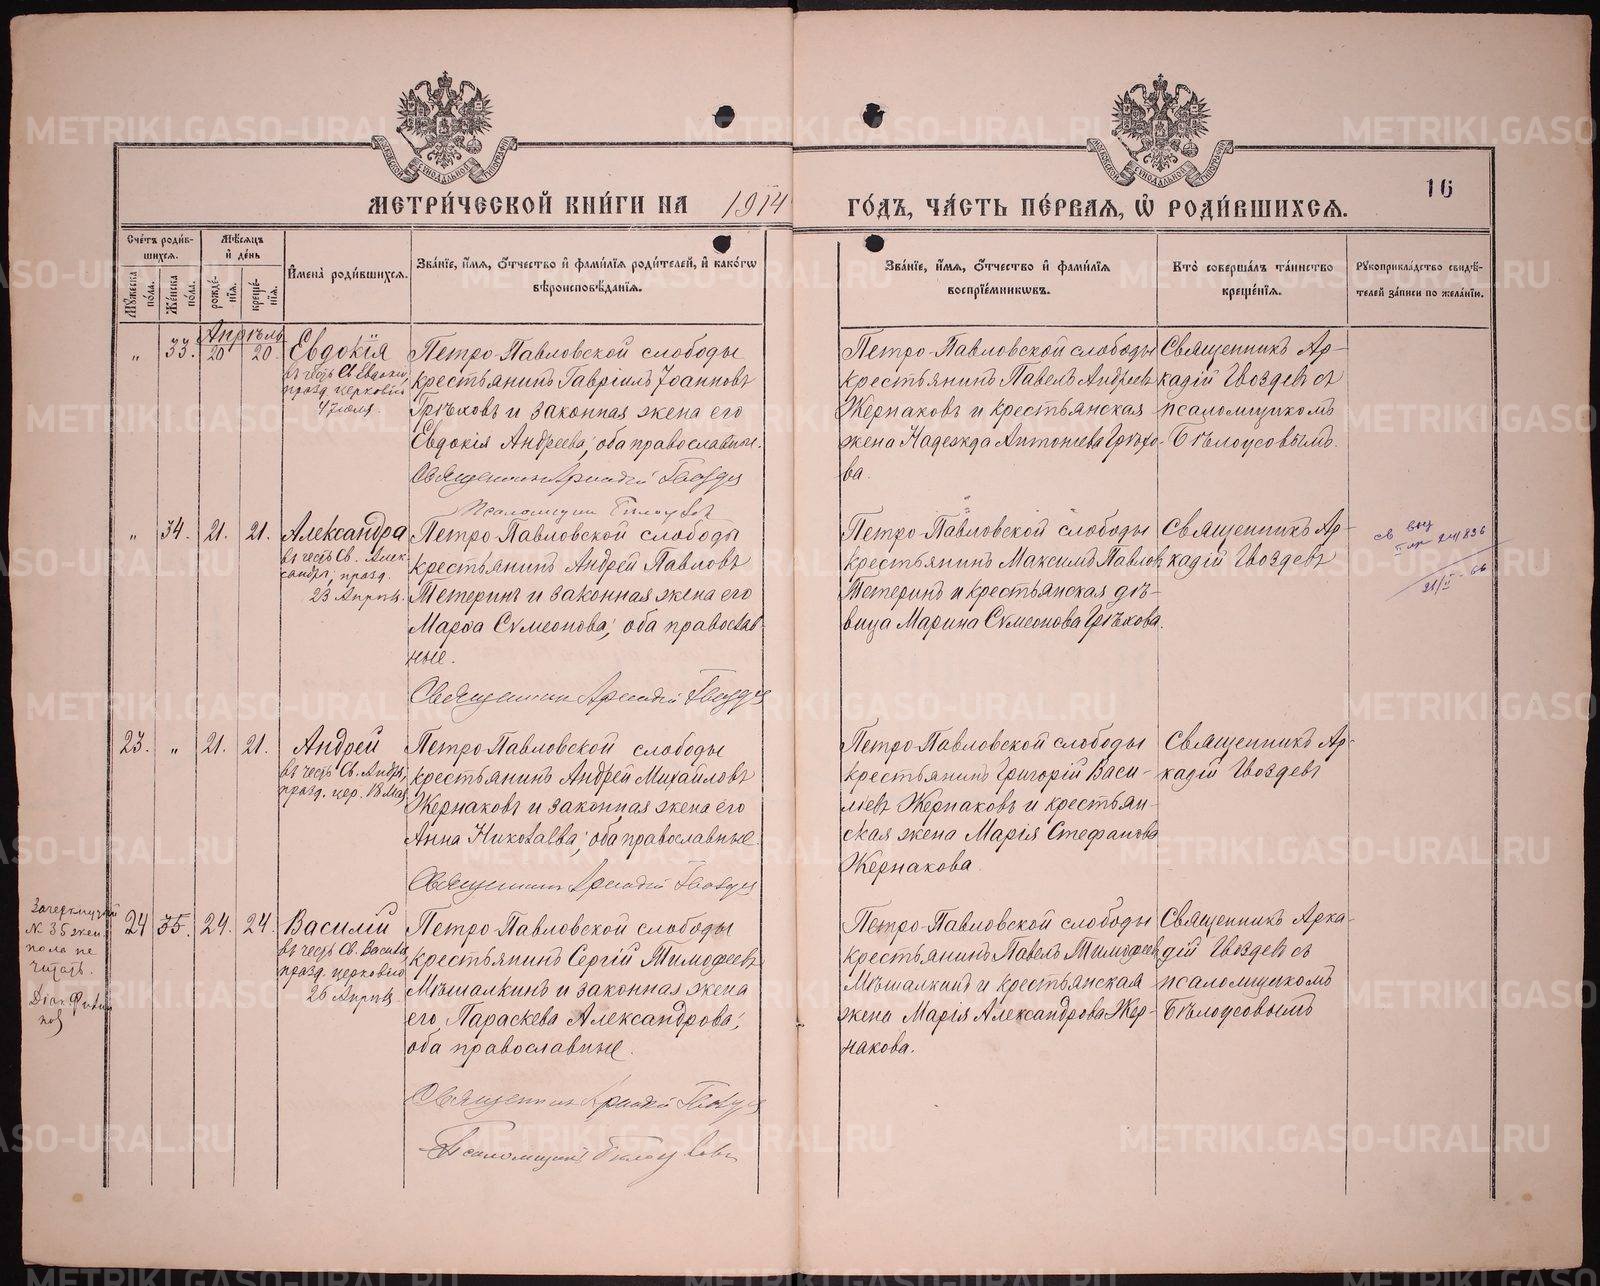 МЕТРИ́ЧЕСКОЙ КНИ́ГИ НА 1914 ГО́ДЪ, ЧА́СТЬ ПЕ́РВАЯ, Ѡ РОДИ́ВШИХСЯ.
16
Сче́тъ роди́в-
шихся.
Му́жеска по́ла.
Же́нска по́ла.
Мѣ́сяцъ
и де́нь
рожде́нїя.
креще́нїя.
Имена̀ роди́вшихся.
Зва́нїе, и́мя, о́тчество и фами́лїя роди́телей, и како́гѡ
вѣроисповѣ́данїя.
Зва́нїе, и́мя, о́тчество и фами́лїя
воспрїе́мникѡвъ.
Кто̀ соверша́лъ та́инство
креще́нїя.
Рꙋкоприкла́дство свидѣ́-
телей за́писи по жела́нїю.
Апрѣль
„ 33. 20 20. Евдокія
въ честь Св Евдокіи,
празд. церковію
4 Іюля.
Петро-Павловской слободы
крестьянинъ Гавріилъ Іоанновъ
Грѣховъ и законная жена его
Евдокія Андреева; оба православные.
Священникъ Аркадій Гвоздевъ
Псаломщикъ Бѣлоусовъ
Петро-Павловской слободы
крестьянинъ Павелъ Андреевъ
Жернаковъ и крестьянская
жена Надежда Антоніева Грѣхо-
ва.
Священникъ Ар-
кадій Гвоздевъ съ
псаломщикомъ
Бѣлоусовымъ.
„ 34. 21. 21. Александра
въ честь Св. Алек-
сандры, празд.
23 Апрѣля.
Петро-Павловской слободы
крестьянинъ Андрей Павловъ
Тетеринъ и законная жена его
Марѳа Сѵмеонова; оба православ-
ные.
Священникъ Аркадій Гвоздевъ
Петро-Павловской слободы
крестьянинъ Максимъ Павловъ
Тетеринъ и крестьянская дѣ-
вица Марина Сѵмеонова Грѣхова.
Священникъ Ар-
кадій Гвоздевъ
23. „ 21. 21. Андрей
въ честь Св. Андрея,
празд. цер. 18 Мая
Петро-Павловской слободы
крестьянинъ Андрей Михайловъ
Жернаковъ и законная жена его
Анна Николаева; оба православные.
Священникъ Аркадій Гвоздевъ
Петро-Павловской слободы
крестьянинъ Григорій Васи-
льевъ Жернаковъ и крестьян-
ская жена Марія Стефанова
Жернакова
Священникъ Ар-
кадій Гвоздевъ
Зачеркнутый
№ 35 жен
пола не
читать.
24 35. 24. 24. Василій
въ честь Св. Василія,
празд. церковію
26 Апрѣля
Петро-Павловской слободы
крестьянинъ Сергій Тимофеевъ
Мѣшалкинъ и законная жена
его, Параскева Александрова;
оба православные.
Священникъ Аркадій Гвоздевъ
Псаломщикъ Бѣлоусовъ
Петро-Павловской слободы
крестьянинъ Павелъ Тимофеевъ
Мѣшалкинъ и крестьянская
жена Марія Александрова Жер-
накова.
Священникъ Арка-
дій Гвоздевъ съ
псаломщикомъ
Бѣлоусовымъ
METRIKI.GASO-URAL.RU